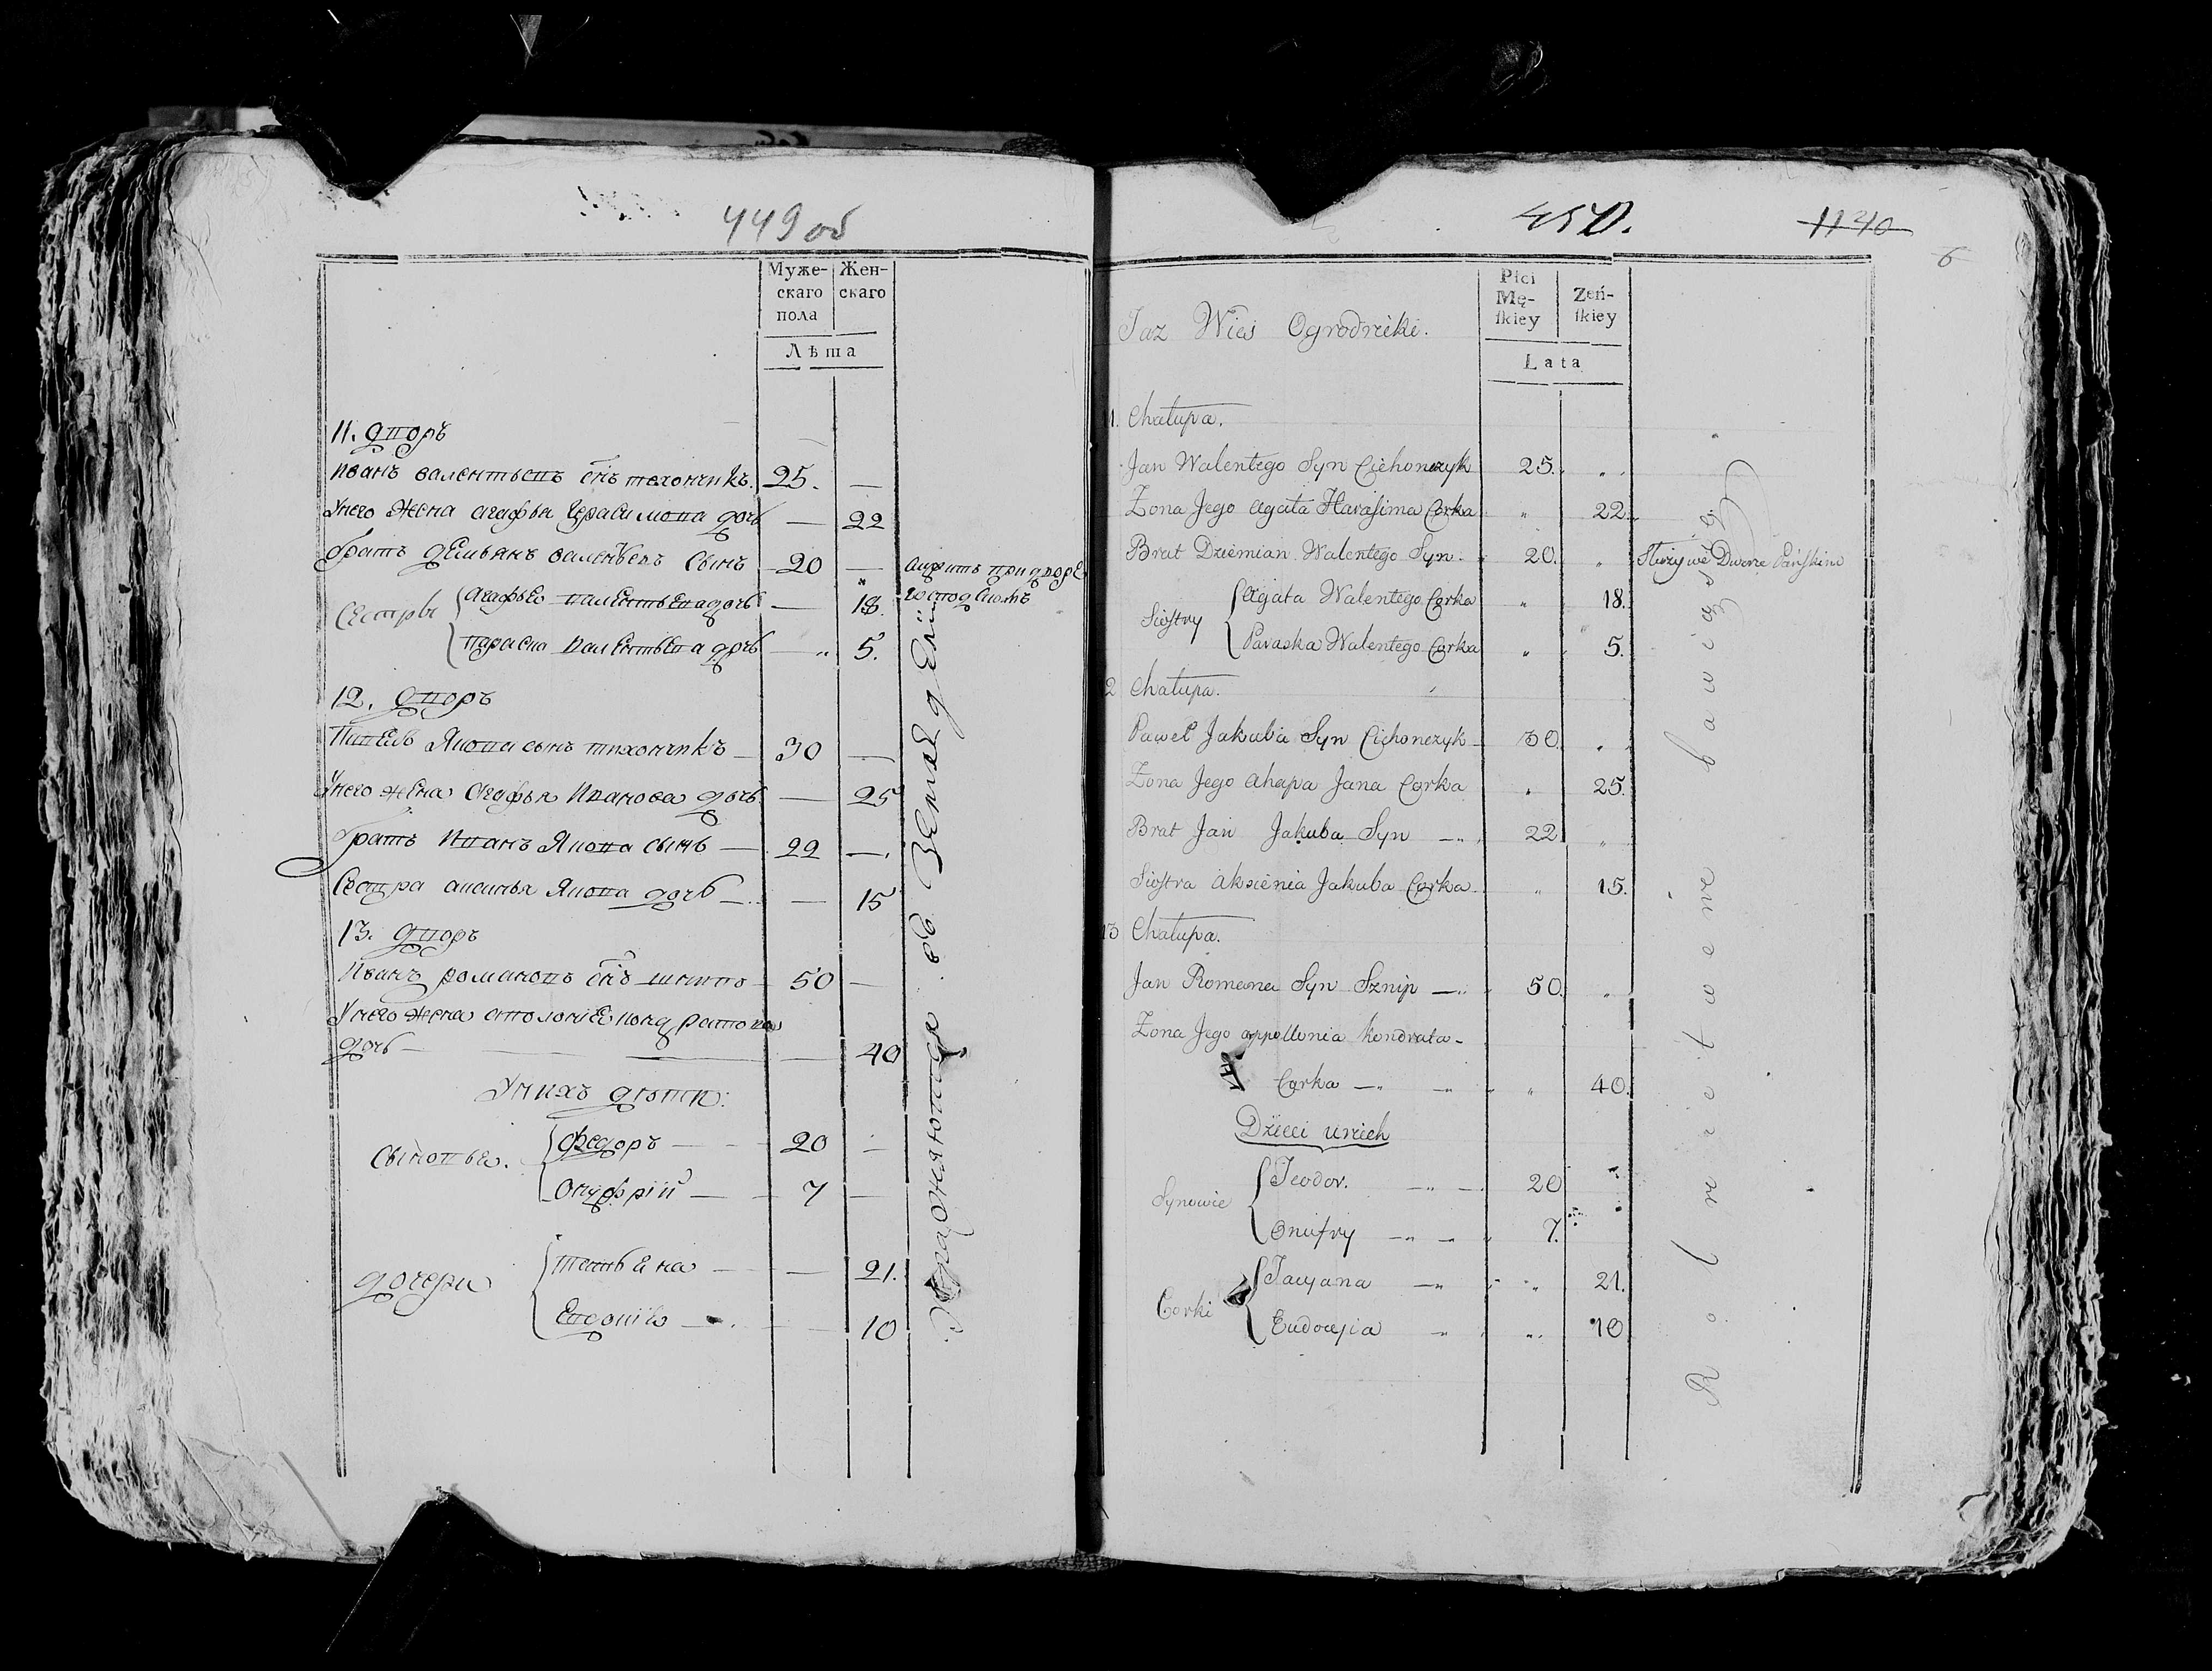 449 об
Муже-
скаго
пола
Жен-
скаго
Лѣта
11. дворъ
Иванъ валентьевъ снъ тихончикъ. 25. —
У него жена агафья Герасимова дочь — 22
братъ демьянъ валентьевъ сынъ 20 —
служитъ при дворе
господскомъ
сестры
Агафья валентьева дочь — 18.
параска валентьева дочь — 5.
12. дворъ
Павелъ Якова сынъ тихончикъ — 30 —
У него жена Агафья Иванова дочь — 25
братъ Иванъ Якова сынъ — 22 —
Сестра аксинья Якова дочь — 15
13. дворъ
Иванъ романовъ снъ шнипъ 50 —
У него жена аполонія кондратова
дочь — 40
У нихъ дети:
сыновья.
федоръ — 20 —
Онуфрій — 7 —
дочери
татьяна — 21.
Евдокія — 10
450.
1140
6
Płci
Mę-
ſkiey
Zeń-
ſkiey
Lata
Taz Wieś Ogrodniki.
11. Chałupa.
Jan Walentego Syn Cichonczyk 25. „
Żona Jego Agata Harasima Corka „ 22.
Brat Dziemian Walentego Syn 20. „ Służy we Dworze Pańskim
Siostry
Agata Walentego Corka „ 18.
Paraska Walentego Corka „ 5.
12 Chałupa.
Paweł Jakuba Syn Cichonczyk 30. „
Żona Jego Ahapa Jana Corka „ 25.
Brat Jan Jakuba Syn 22 „
Siostra Aksienia Jakuba Corka „ 15.
13 Chałupa.
Jan Romana Syn Sznip 50. „
Żona Jego Appollonia Kondrata
Corka „ 40.
Dzieci u nich
Synowie
Teodor. 20
Onufry 7.
Corki
Tacjana „ 21.
Eudocyia „ 10
Rolnictwem bawią się